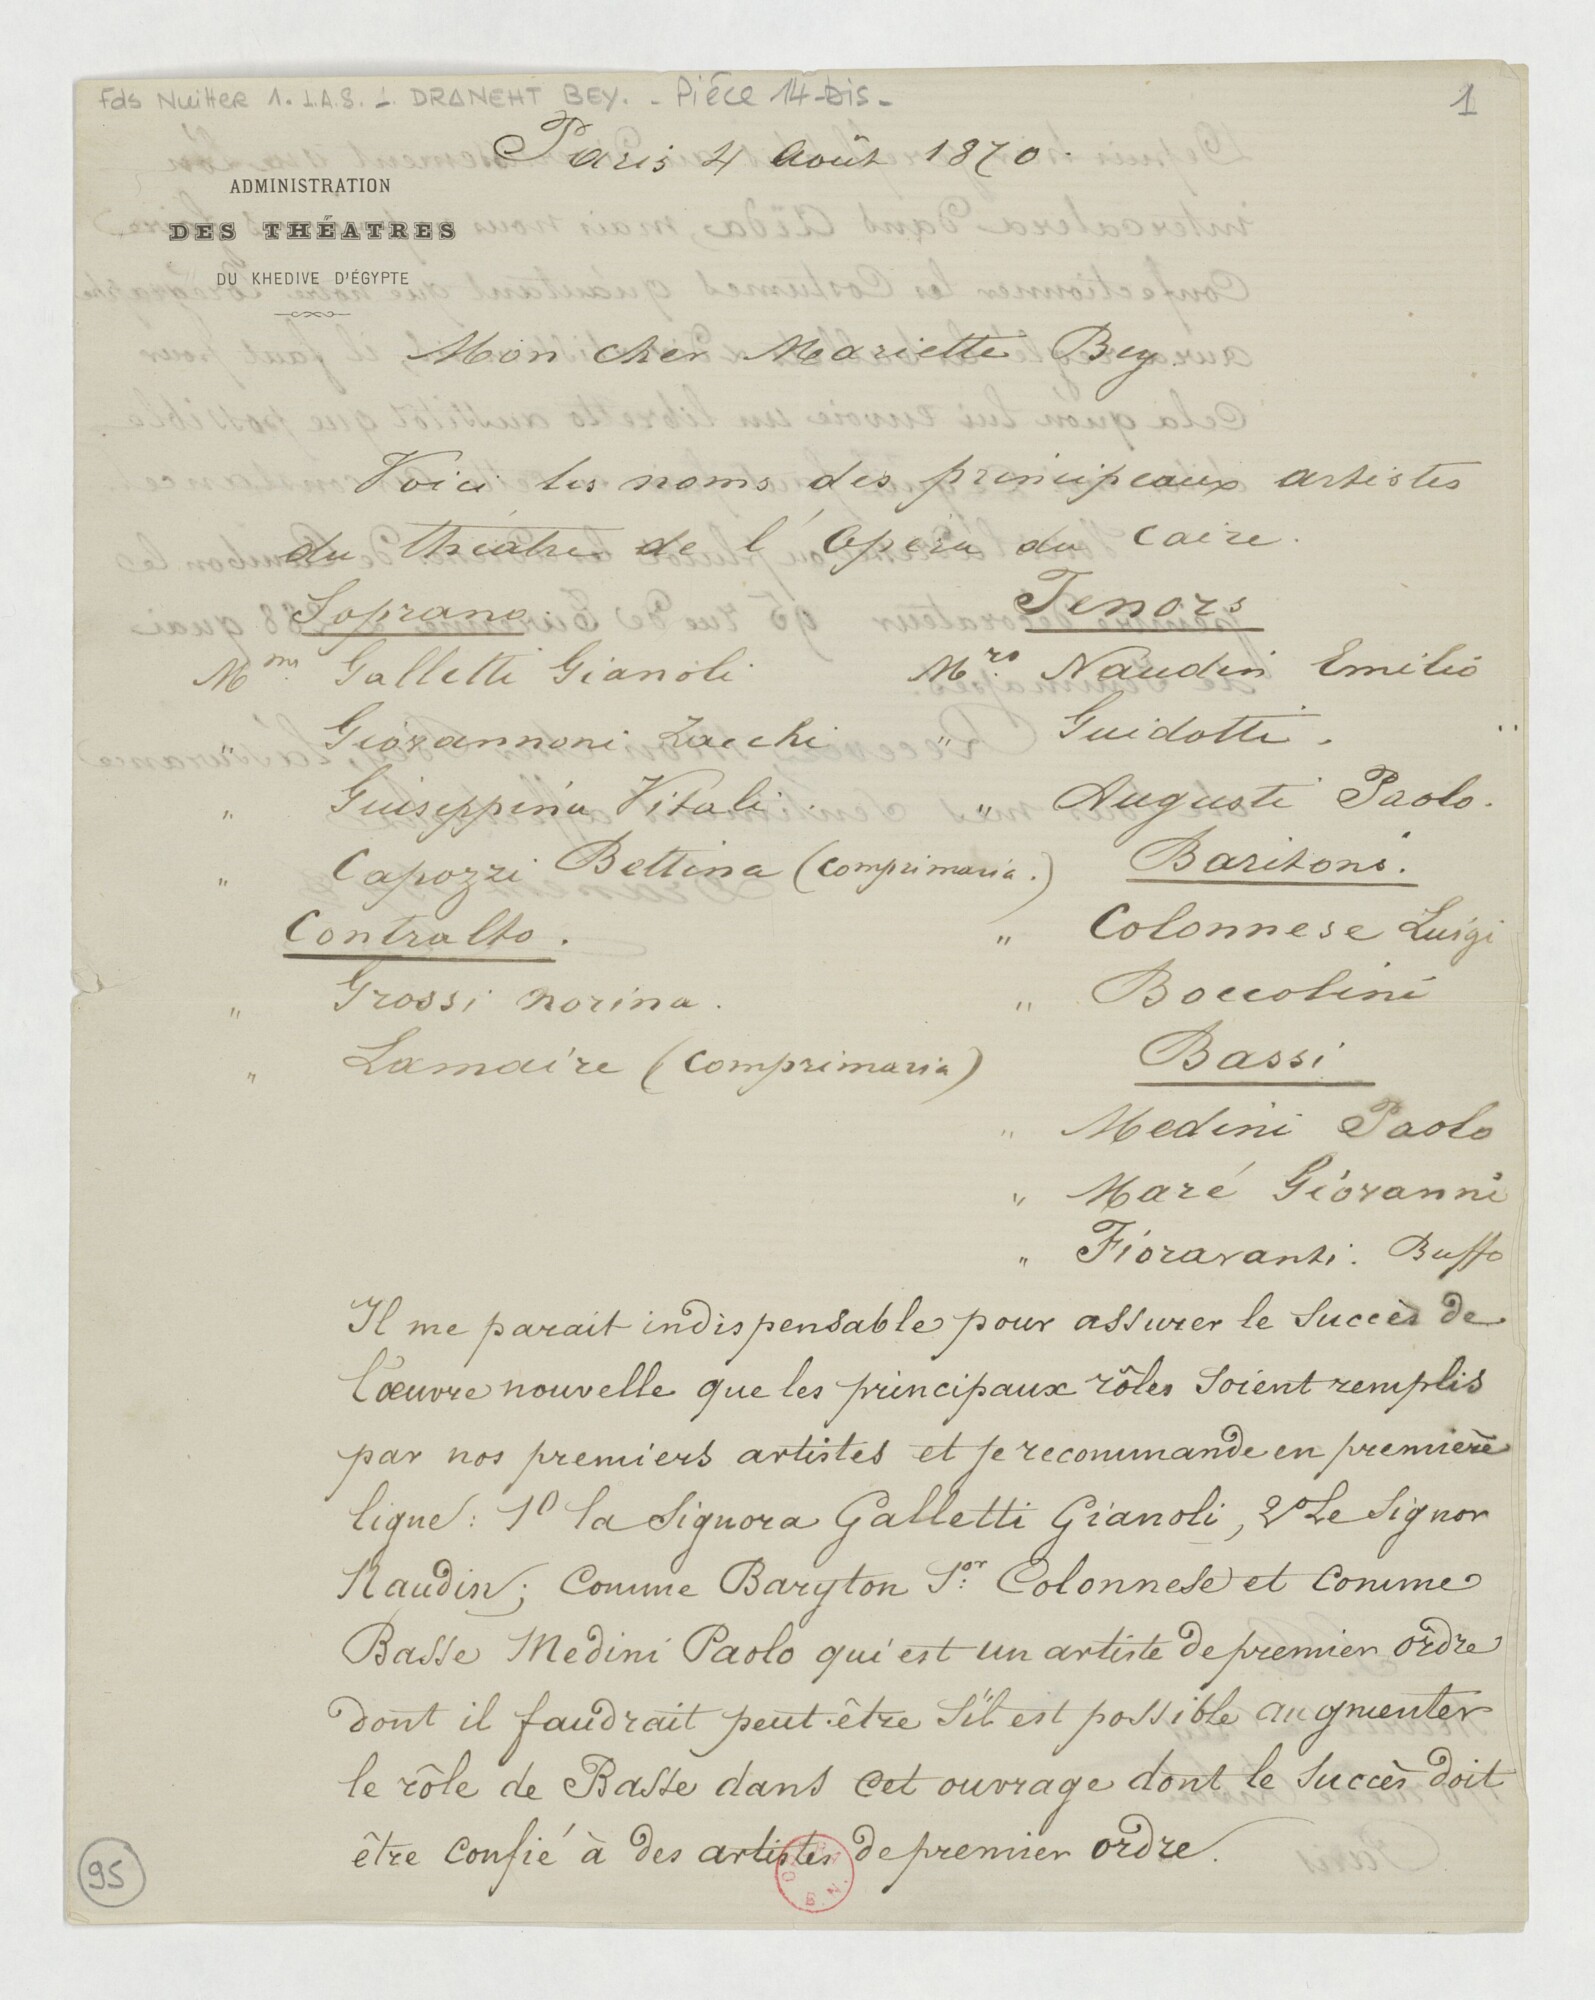 Fds Nuitter 1. L.A.S. 1. DRANEHT BEY. - Pièce 14-bis -
1
Paris 4 Août 1870.
ADMINISTRATION
DES THÉATRES
DU KHEDIVE D'ÉGYPTE
Mon cher Mariette Bey.
Voici les noms des principeaux artistes
du théatre de l'Opéra du Caire.
Soprano. Tenors
Mmes Galletti Gianoli Mrs. Naudin Emilio
" Giovannoni Zacchi " Guidotti. "
" Giuseppina Vitali. " Augusti Paolo.
" Capozzi Bettina (comprimaria.) Baritoni.
Contralto. " Colonnese Luigi
" Grossi Norina. " Boccolini
" Lamaire (comprimaria) Bassi
" Medini Paolo
" Maré Giovanni
" Fioravanti. Buffo
Il me parait indispensable pour assurer le succès de
l'œuvre nouvelle que les principaux rôles soient remplis
par nos premiers artistes et je recommande en première
ligne: 1º la Signora Galletti Gianoli, 2º Le Signor
Naudin; comme Baryton Sor Colonnese et comme
Basse Medini Paolo qui est un artiste de premier ordre
dont il faudrait peut-être s'il est possible augmenter
le rôle de Basse dans cet ouvrage dont le succès doit
être confié à des artistes de premier ordre.
95